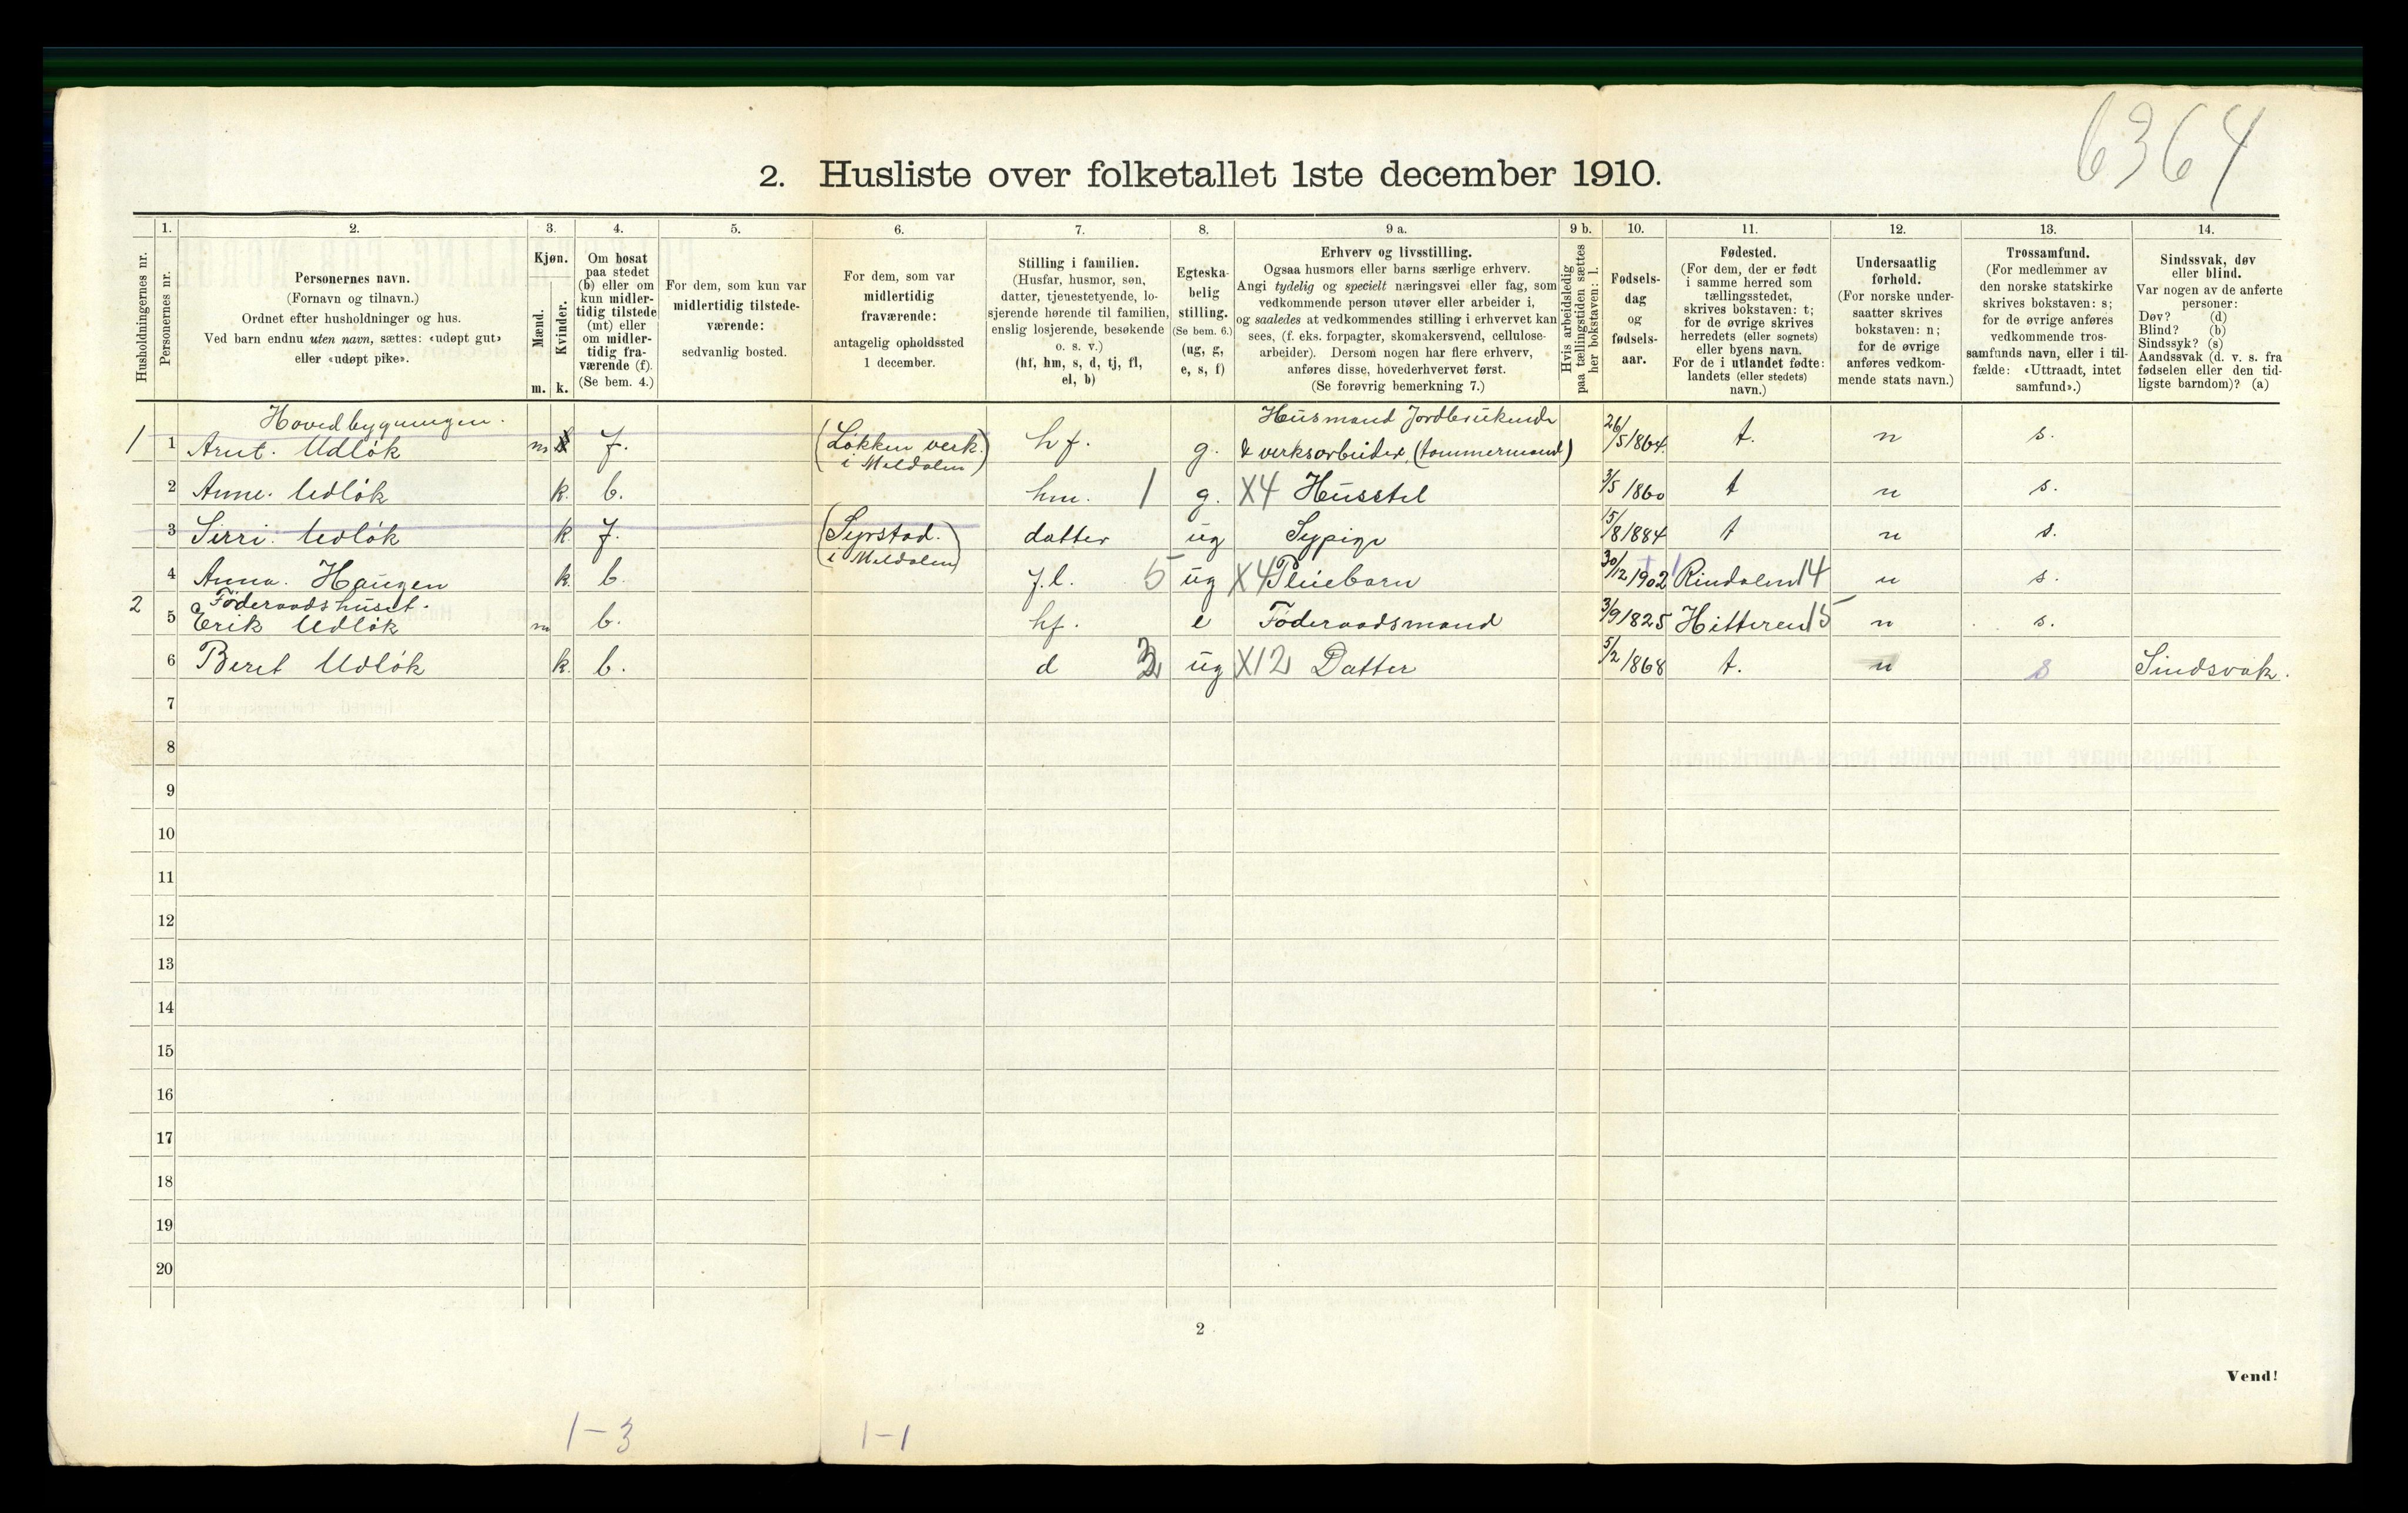 6364
2. Husliste over folketallet 1ste december 1910.
Husholdningernes nr.
1.
Personernes nr.
2.
Personernes navn.
(Fornavn og tilnavn.)
Ordnet efter husholdninger og hus.
Ved barn endnu uten navn, sættes: «udøpt gut»
eller «udøpt pike».
3.
Kjøn.
Mænd.
Kvinder.
m. k.
4.
Om bosat
paa stedet
(b) eller om
kun midler-
tidig tilstede
(mt) eller
om midler-
tidig fra-
værende (f).
(Se bem. 4.)
5.
For dem, som kun var
midlertidig tilstede-
værende:
sedvanlig bosted.
6.
For dem, som var
midlertidig
fraværende:
antagelig opholdssted
1 december.
7.
Stilling i familien.
(Husfar, husmor, søn,
datter, tjenestetyende, lo-
sjerende hørende til familien,
enslig losjerende, besøkende
o. s. v.)
(hf, hm, s, d, tj, fl,
el, b)
8.
Egteska-
belig
stilling.
(Se bem. 6.)
(ug, g,
e, s, f)
9 a.
Erhverv og livsstilling.
Ogsaa husmors eller barns særlige erhverv.
Angi tydelig og specielt næringsvei eller fag, som
vedkommende person utøver eller arbeider i,
og saaledes at vedkommendes stilling i erhvervet kan
sees, (f. eks. forpagter, skomakersvend, cellulose-
arbeider). Dersom nogen har flere erhverv,
anføres disse, hovederhvervet først.
(Se forøvrig bemerkning 7.)
9 b.
Hvis arbeidsledig
paa tællingstiden sættes
her bokstaven: l.
10.
Fødsels-
dag
og
fødsels-
aar.
11.
Fødested.
(For dem, der er født
i samme herred som
tællingsstedet,
skrives bokstaven: t;
for de øvrige skrives
herredets (eller sognets)
eller byens navn.
For de i utlandet fødte:
landets (eller stedets)
navn.)
12.
Undersaatlig
forhold.
(For norske under-
saatter skrives
bokstaven: n;
for de øvrige
anføres vedkom-
mende stats navn.)
13.
Trossamfund.
(For medlemmer av
den norske statskirke
skrives bokstaven: s;
for de øvrige anføres
vedkommende tros-
samfunds navn, eller i til-
fælde: «Uttraadt, intet
samfund».)
14.
Sindssvak, døv
eller blind.
Var nogen av de anførte
personer:
Døv? (d)
Blind? (b)
Sindssyk? (s)
Aandssvak (d. v. s. fra
fødselen eller den tid-
ligste barndom)? (a)
Hovedbygningen. Husmand Jordbrukende
1 1 Arnt. Udløk m f. (Løkken verk. i Meldalen) hf. g. & verksarbeider, (tømmermand) 26/5 1864. t. n s.
2 Anne. Udløk k. b. hm. 1 g. X4 Husstel 3/5 1860 t n s.
3 Sirri. Udløk k. f. (Syrstad. i Meldalen) datter ug Sypige 15/8 1884 t n s.
4 Anna. Haugen k. b. f.l. 5 ug X4 Pleiebarn 30/12 1902 Rindalen 14 n s.
2 Føderaadshuset.
5 Erik Udløk m b. hf. e Føderaadsmand 3/9 1825 Hitteren 15 n s.
6 Beret Udløk k. b. d 3 ug X12 Datter 5/2 1868 t. n s Sindsvak.
7
8
9
10
11
12
13
14
15
16
17
18
19
20
2
Vend!
1-3 1-1